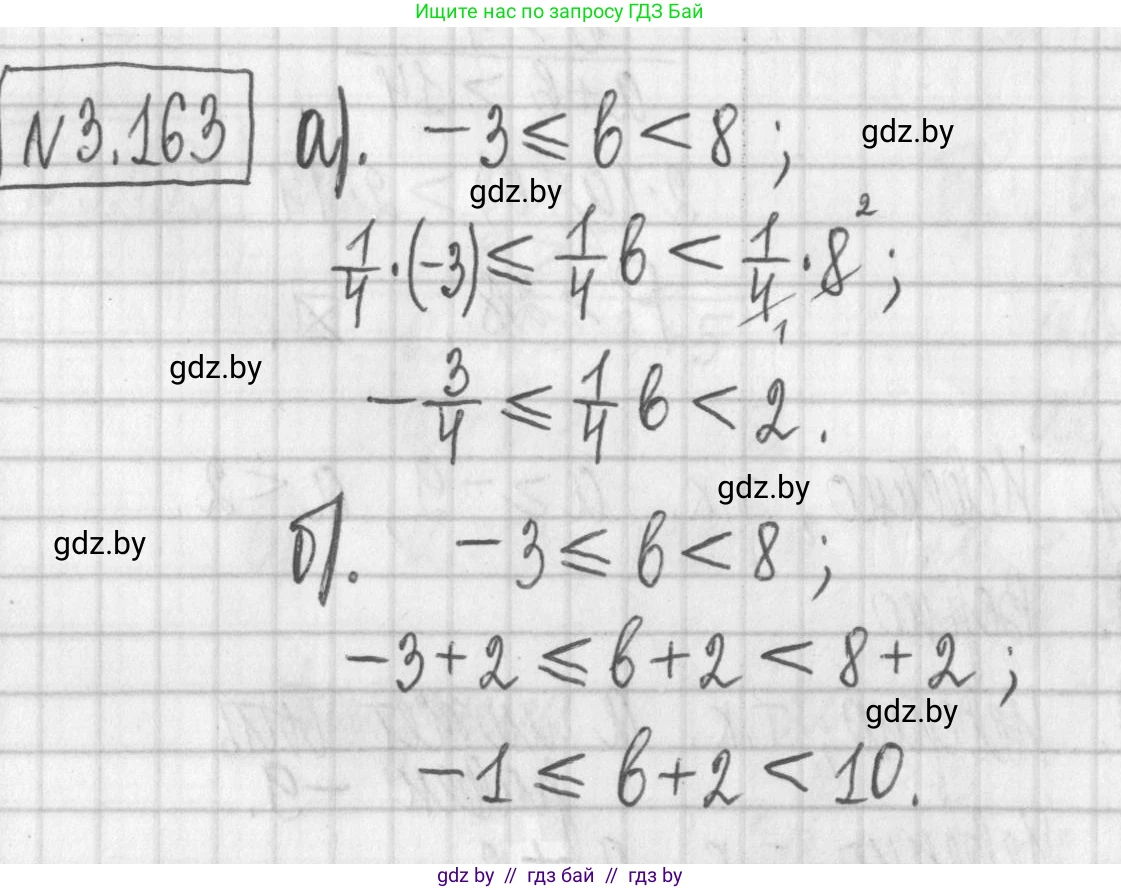 Ищите нас по запросу ГДЗ Бай
N 3.163 а). -3 ≤ b < 8 ; gdz.by
gdz.by
1/4 · (-3) ≤ 1/4 b < 1/4 · 8 ² ;
1
gdz.by
- 3/4 ≤ 1/4 b < 2 .
gdz.by
gdz.by б). -3 ≤ b < 8 ;
-3 + 2 ≤ b + 2 < 8 + 2 ;
gdz.by
-1 ≤ b + 2 < 10.
gdz by // гдз бай // гдз by